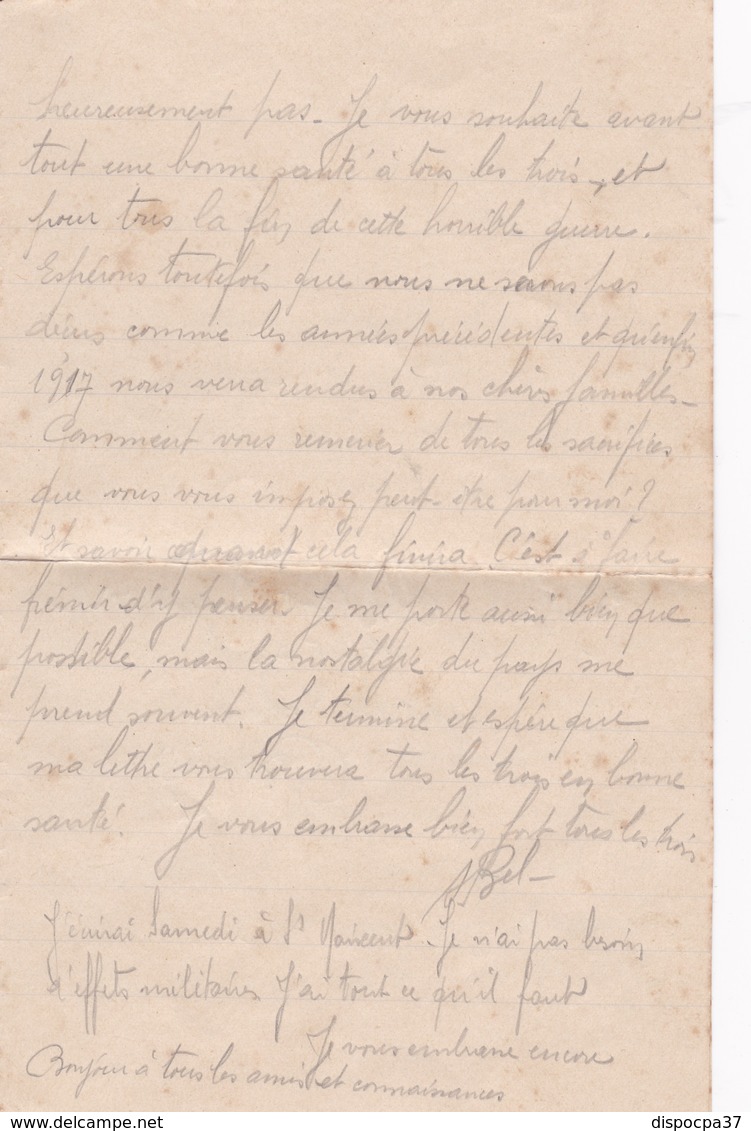 heureusement pas - Je vous souhaite avant
tout une bonne santé à tous les trois -, et
pour tous la fin de cette horrible guerre.
Espérons toutefois que nous ne serons pas
déçus comme les années précédentes et qu'enfin
1917 nous verra rendus à nos chères familles -
Comment vous remercier de tous les sacrifices
que vous vous imposez peut-être pour moi ?
Et savoir quand cela finira C'est à faire
frémir d'y penser. Je me porte aussi bien que
possible, mais la nostalgie du pays me
prend souvent. Je termine et espère que
ma lettre vous trouvera tous les trois en bonne
santé. Je vous embrasse bien fort tous les trois
ABel -
J'écrirai Samedi à St Maixent. Je n'ai pas besoin
d'effets militaires J'ai tout ce qu'il faut
Je vous embrasse encore
Bonjour à tous les amis et connaissances
dispocpa37